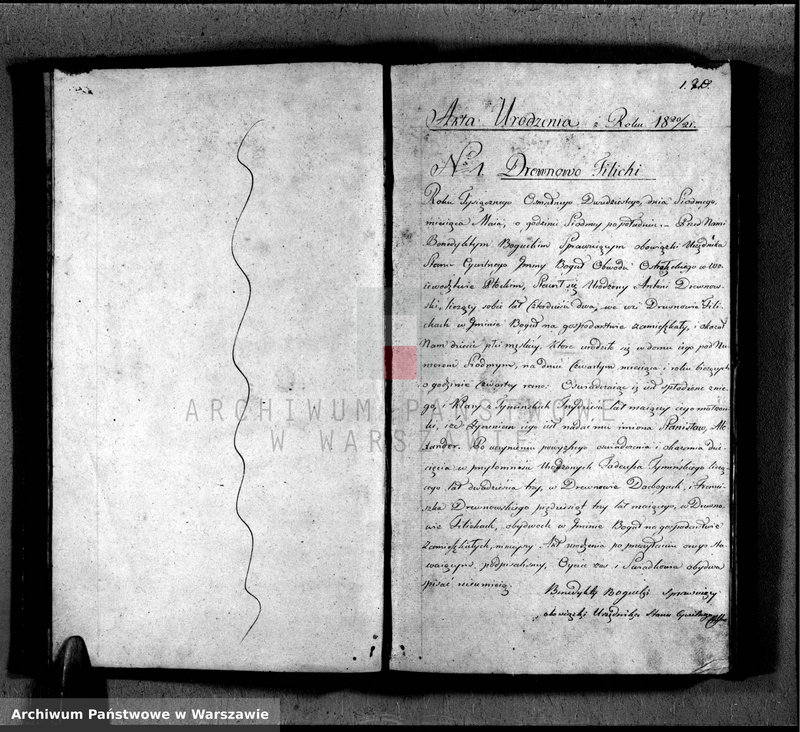 1.
Akta Urodzenia z Roku 1820/21.
No 1 Drewnowo Filichi
Roku Tysiącznego Osmsetnego Dwudziestego, dnia Siodmego,
miesiąca Maia, o godzinie Siodmey popołudniu. Przed Nami
Benedyktym Boguckim Sprawuiącym obowiązki Urzędnika
Stanu Cywilnego Gminy Boguł Obwodu Ostrołęckiego w Wo
iewodztwie Płockim, Stawił się Urodzony Antoni Drewnow-
ski, liczący sobie lat dwa, we wsi Drewnowie Fili-
chach w Gminie Boguł na gospodarstwie zamieszkały, i okazał
Nam dziecie płci męskiey, ktore urodziło się w domu iego pod Nu
merem Siodmym, na dniu Czwartym miesiąca i roku bieżących
o godzinie czwarty rano. Oswiadczaiąc iż iest spłodzone z nie-
go, i Klary z Tymińskich lat maiący iego małzon-
ki, i że życzeniem iego iest nadać mu imiona Stanisław, Ale
xander. Po uczynieniu powyższego oswiadczenia i okazania dzie-
cięcia w przytomności Urodzonych Tadeusza Tymińskiego liczą-
cego lat dwadzieścia trzy, w Drewnowie Dacbogach, i Franci-
szka Drewnowskiego pięćdziesiąt trzy lat maiącego, w Drewno-
wie Filichach, obydwoch w Gminie Boguł na gospodarstwie
Zamieszkałych, ninieyszy Akt urodzenia po przeczytaniu onego sta
waiącym, podpisalismy, Oyciec zas i Swiadkowie obydwa
pisać nieumieią.
Benedykt Bogucki Sprawuiący
obowiązki Urzędnika Stanu Cywilnego
ARCHIWUM PAŃSTWOWE
W WARSZAWIE
Archiwum Państwowe w Warszawie